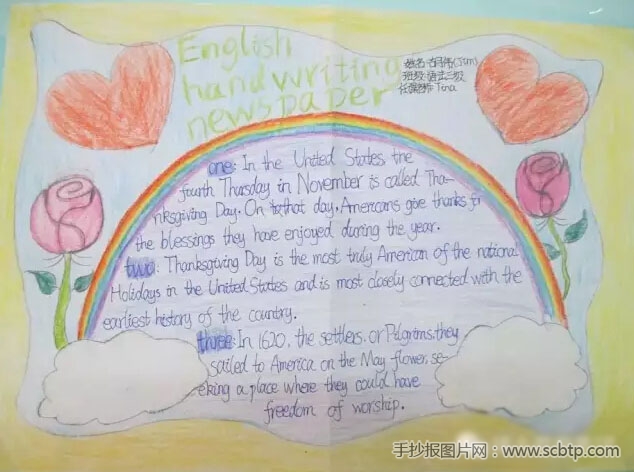 English
handwriting
newspaper
姓名:古月伟(Tom)
班级:语法二级
任课老师:Tina
one: In the United States the
fourth Thursday in November is called Tha-
nksgiving Day. On that day, Americans give thanks for
the blessings they have enjoyed during the year.
two: Thanksgiving Day is the most truly American of the national
Holidays in the United States and is most closely connected with the
earliest history of the country.
three: In 1620, the settlers, or Pilgrims, they
sailed to America on the May flower, se-
eking a place where they could have
freedom of worship.
手抄报图片网:www.scbtp.com